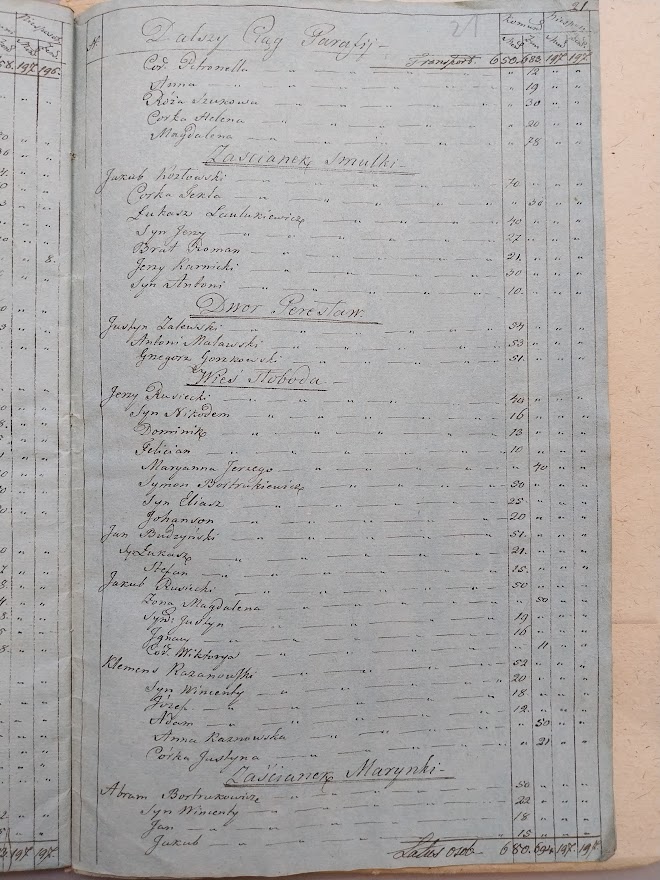 21
21
Dalszy Ciąg Parafij
Transport. 650. 683. 197. 197.
Cór. Petronella " 12 " "
Anna " 19 " "
Róża Szukowa " 30 " "
Corka Helena " 20 " "
Magdalena " 28 " "
Zaścianek Smulki
Jakub Kozłowski 70 " " "
Corka Tekla " 30 " "
Łukasz Laulukiewicz 40 " " "
Syn Jerzy 27 " " "
Brat Roman 21 " " "
Jerzy Karnicki 30 " " "
Syn Antoni 10 " " "
Dwor Peresław
Justyn Zalewski 34 " " "
Antoni Malawski 53 " " "
Grzegorz Gorzkowski 51 " " "
Wieś Słoboda
Jerzy Rusiecki 40 " " "
Syn Nikodem 16 " " "
Dominik 13 " " "
Felician 10 " " "
Maryanna Jerzego " 40 " "
Symon Bortrukiewicz 20 " " "
Syn Eliasz 25 " " "
Johanson 20 " " "
Jan Budzyński 51 " " "
Sy. Łukasz 21 " " "
Stefan 15 " " "
Jakub Rusiecki 50 " " "
Żona Magdalena " 50 " "
Syn: Justyn 19 " " "
Ignacy 16 " " "
Cór. Wiktorya " 11 " "
Klemens Kazanowski 52 " " "
Syn Wincenty 20 " " "
Józef 18 " " "
Adam 12 " " "
Anna Kaznowska " 50 " "
Córka Justyna " 21 " "
Zaścianek Marynki
Abram Bortrukowicz 50 " " "
Syn Wincenty 22 " " "
Jan 18 " " "
Jakub 15 " " "
Latus osob 680. 694. 197. 197.